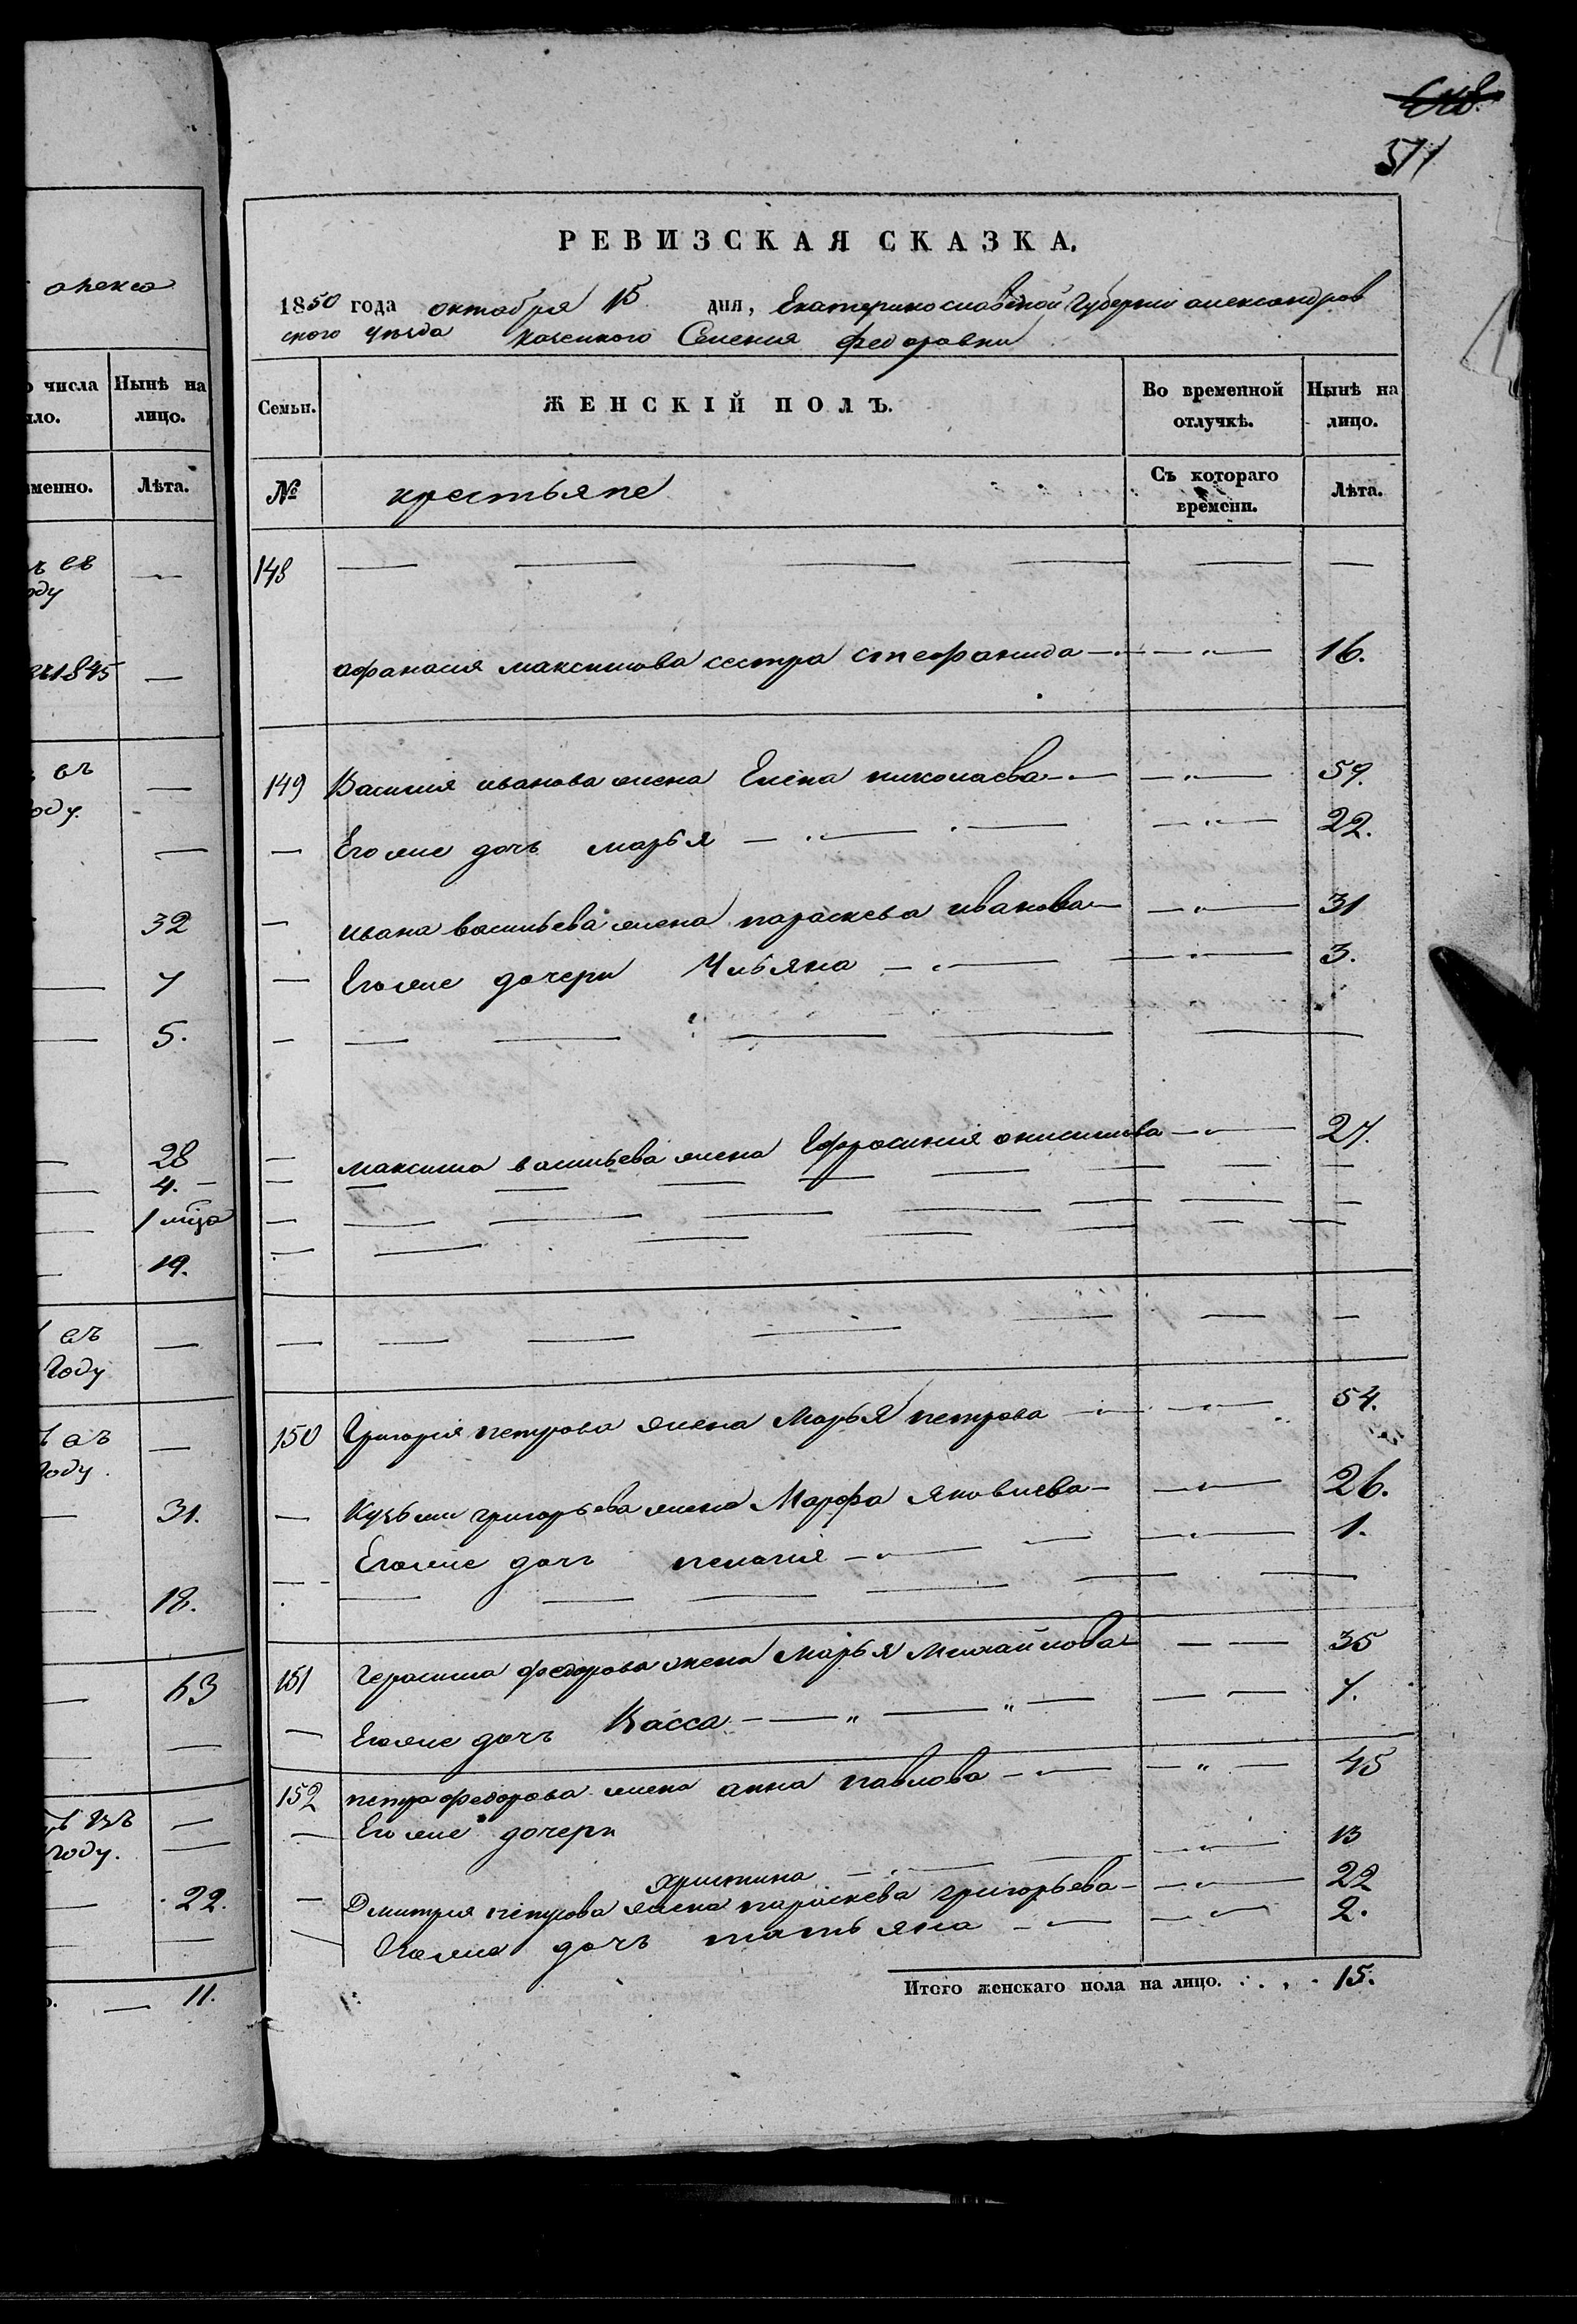 опека
о числа
Нынѣ на
лицо.
менно.
Лѣта.
оду
1845
въ
оду.
32
7
5.
28
4.
1 мца
19.
въ
Году
Году.
31.
18.
63
году.
22.
11.
511
РЕВИЗСКАЯ СКАЗКА.
1850 года октября 15 дня, Екатеринославской Губернии александров
ского уезда казенного Селения федоровки
Семьи.
ЖЕНСКІЙ ПОЛЪ.
Во временной отлучкѣ.
Нынѣ на лицо.
№
крестьяне
Съ котораго времени.
Лѣта.
148 — — — — — —
афанасия максимова сестра стефанида — — " — 16.
149 Василия иванова жена Елена николаева — — " — 59.
— Его же дочь марья — " — " — — " — 22.
— ивана васильева жена параскева иванова — — " — 31
— Его же дочери Ульяна — " — — " — 3.
— — — — — —
— максима васильева жена Ефросиния онисимова — " — 27.
— — — — — — — —
— — — — — — — —
— — — — — — —
— — — — — —
150 Григория петрова жена Марья петрова — " — — " — 54.
— Кузьми григорьева жена Марфа яковлева — — " — 26.
Его же дочь пелагия — " — — — " — 1.
— — — — — — —
151 Герасима федорова жена Марья Михайлова — — — 35
— Его же дочь Васса — — " — " — — — 7.
152 петра федорова жена анна павлова — " — — " — 45
— Его же дочери
христина — " — — — " — 13
— Дмитрия петрова жена параскева григорьева — — " — 22
— Его же дочь татьяна — " — — " — 2.
Итого женскаго пола на лицо. . . . 15.